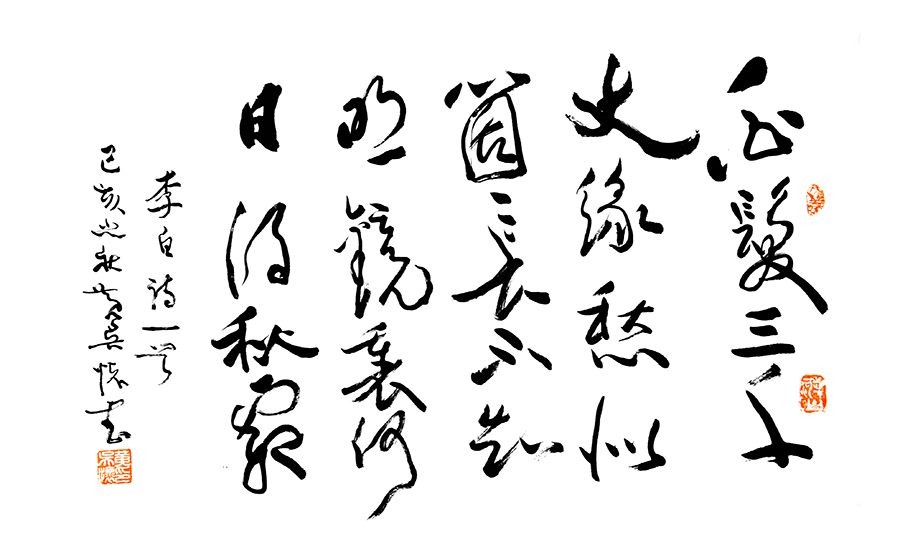 白髮三千
丈緣愁似
箇長不知
明鏡裏何
日得秋霜
李白詩一首
己亥秋黃吳懷書